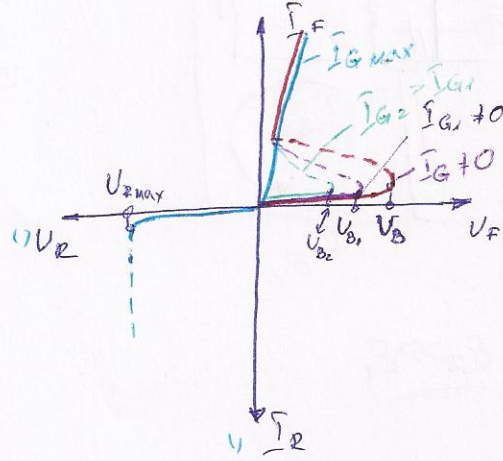 I_F
I_G max
I_G2 > I_G1
I_G1 ≠ 0
I_G ≠ 0
U_Rmax
U_R
U_B2
U_B1
U_B
U_F
I_R